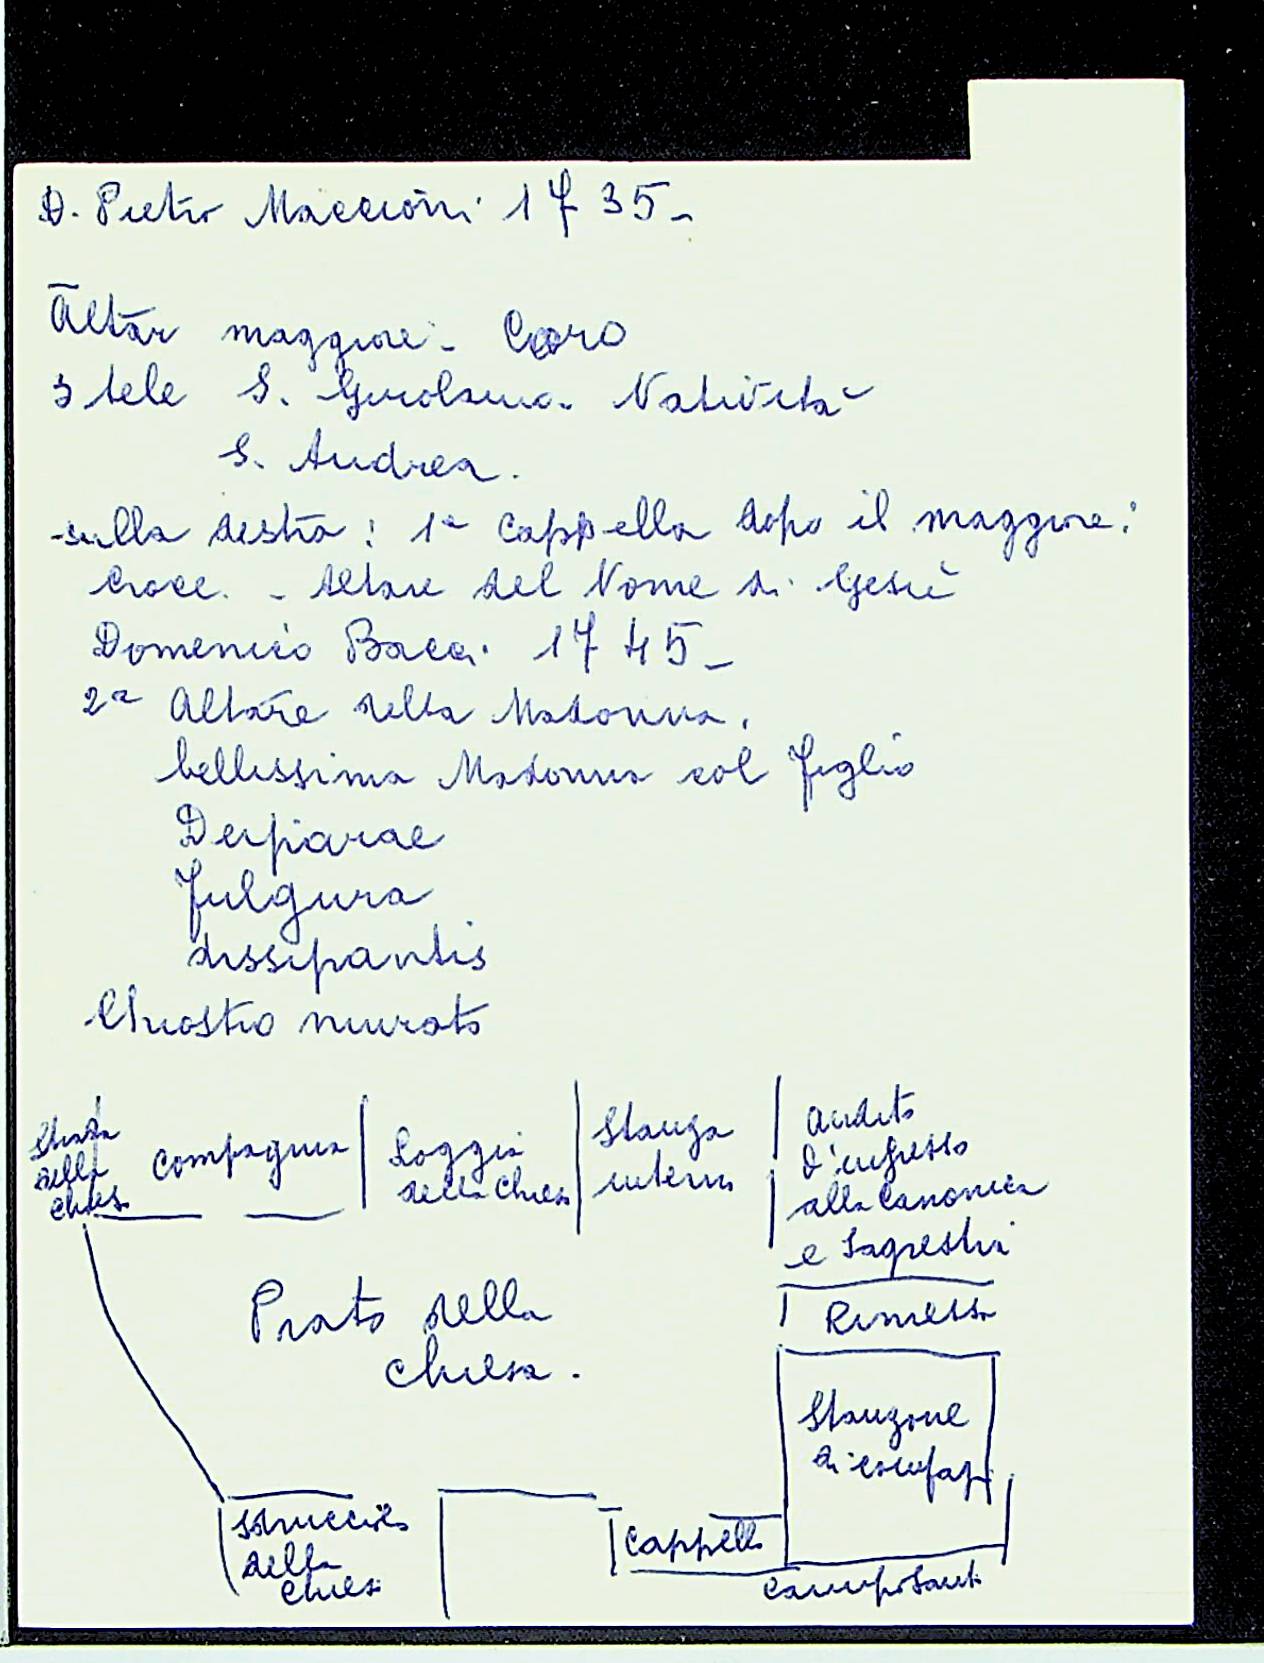 D. Pietro Maccioni 1735-
Altar maggiore - Coro
3 tele S. Girolamo. Natività
S. Andrea.
sulla destra: 1a Cappella dopo il maggiore:
Croce. - Altare del Nome di Gesù
Domenico Bacci 1745-
2a Altare della Madonna.
bellissima Madonna col figlio
Deiparae
fulgura
dissipantis
Chiostro murato
Strada
della
Chiesa
Compagnia
Loggia
della Chiesa
Stanza
interna
andito
d'ingresso
alla Canonica
e Sagrestia
Rimessa
Prato della
chiesa.
Stanzone
di
della
Chiesa
Cappella
Camposanto